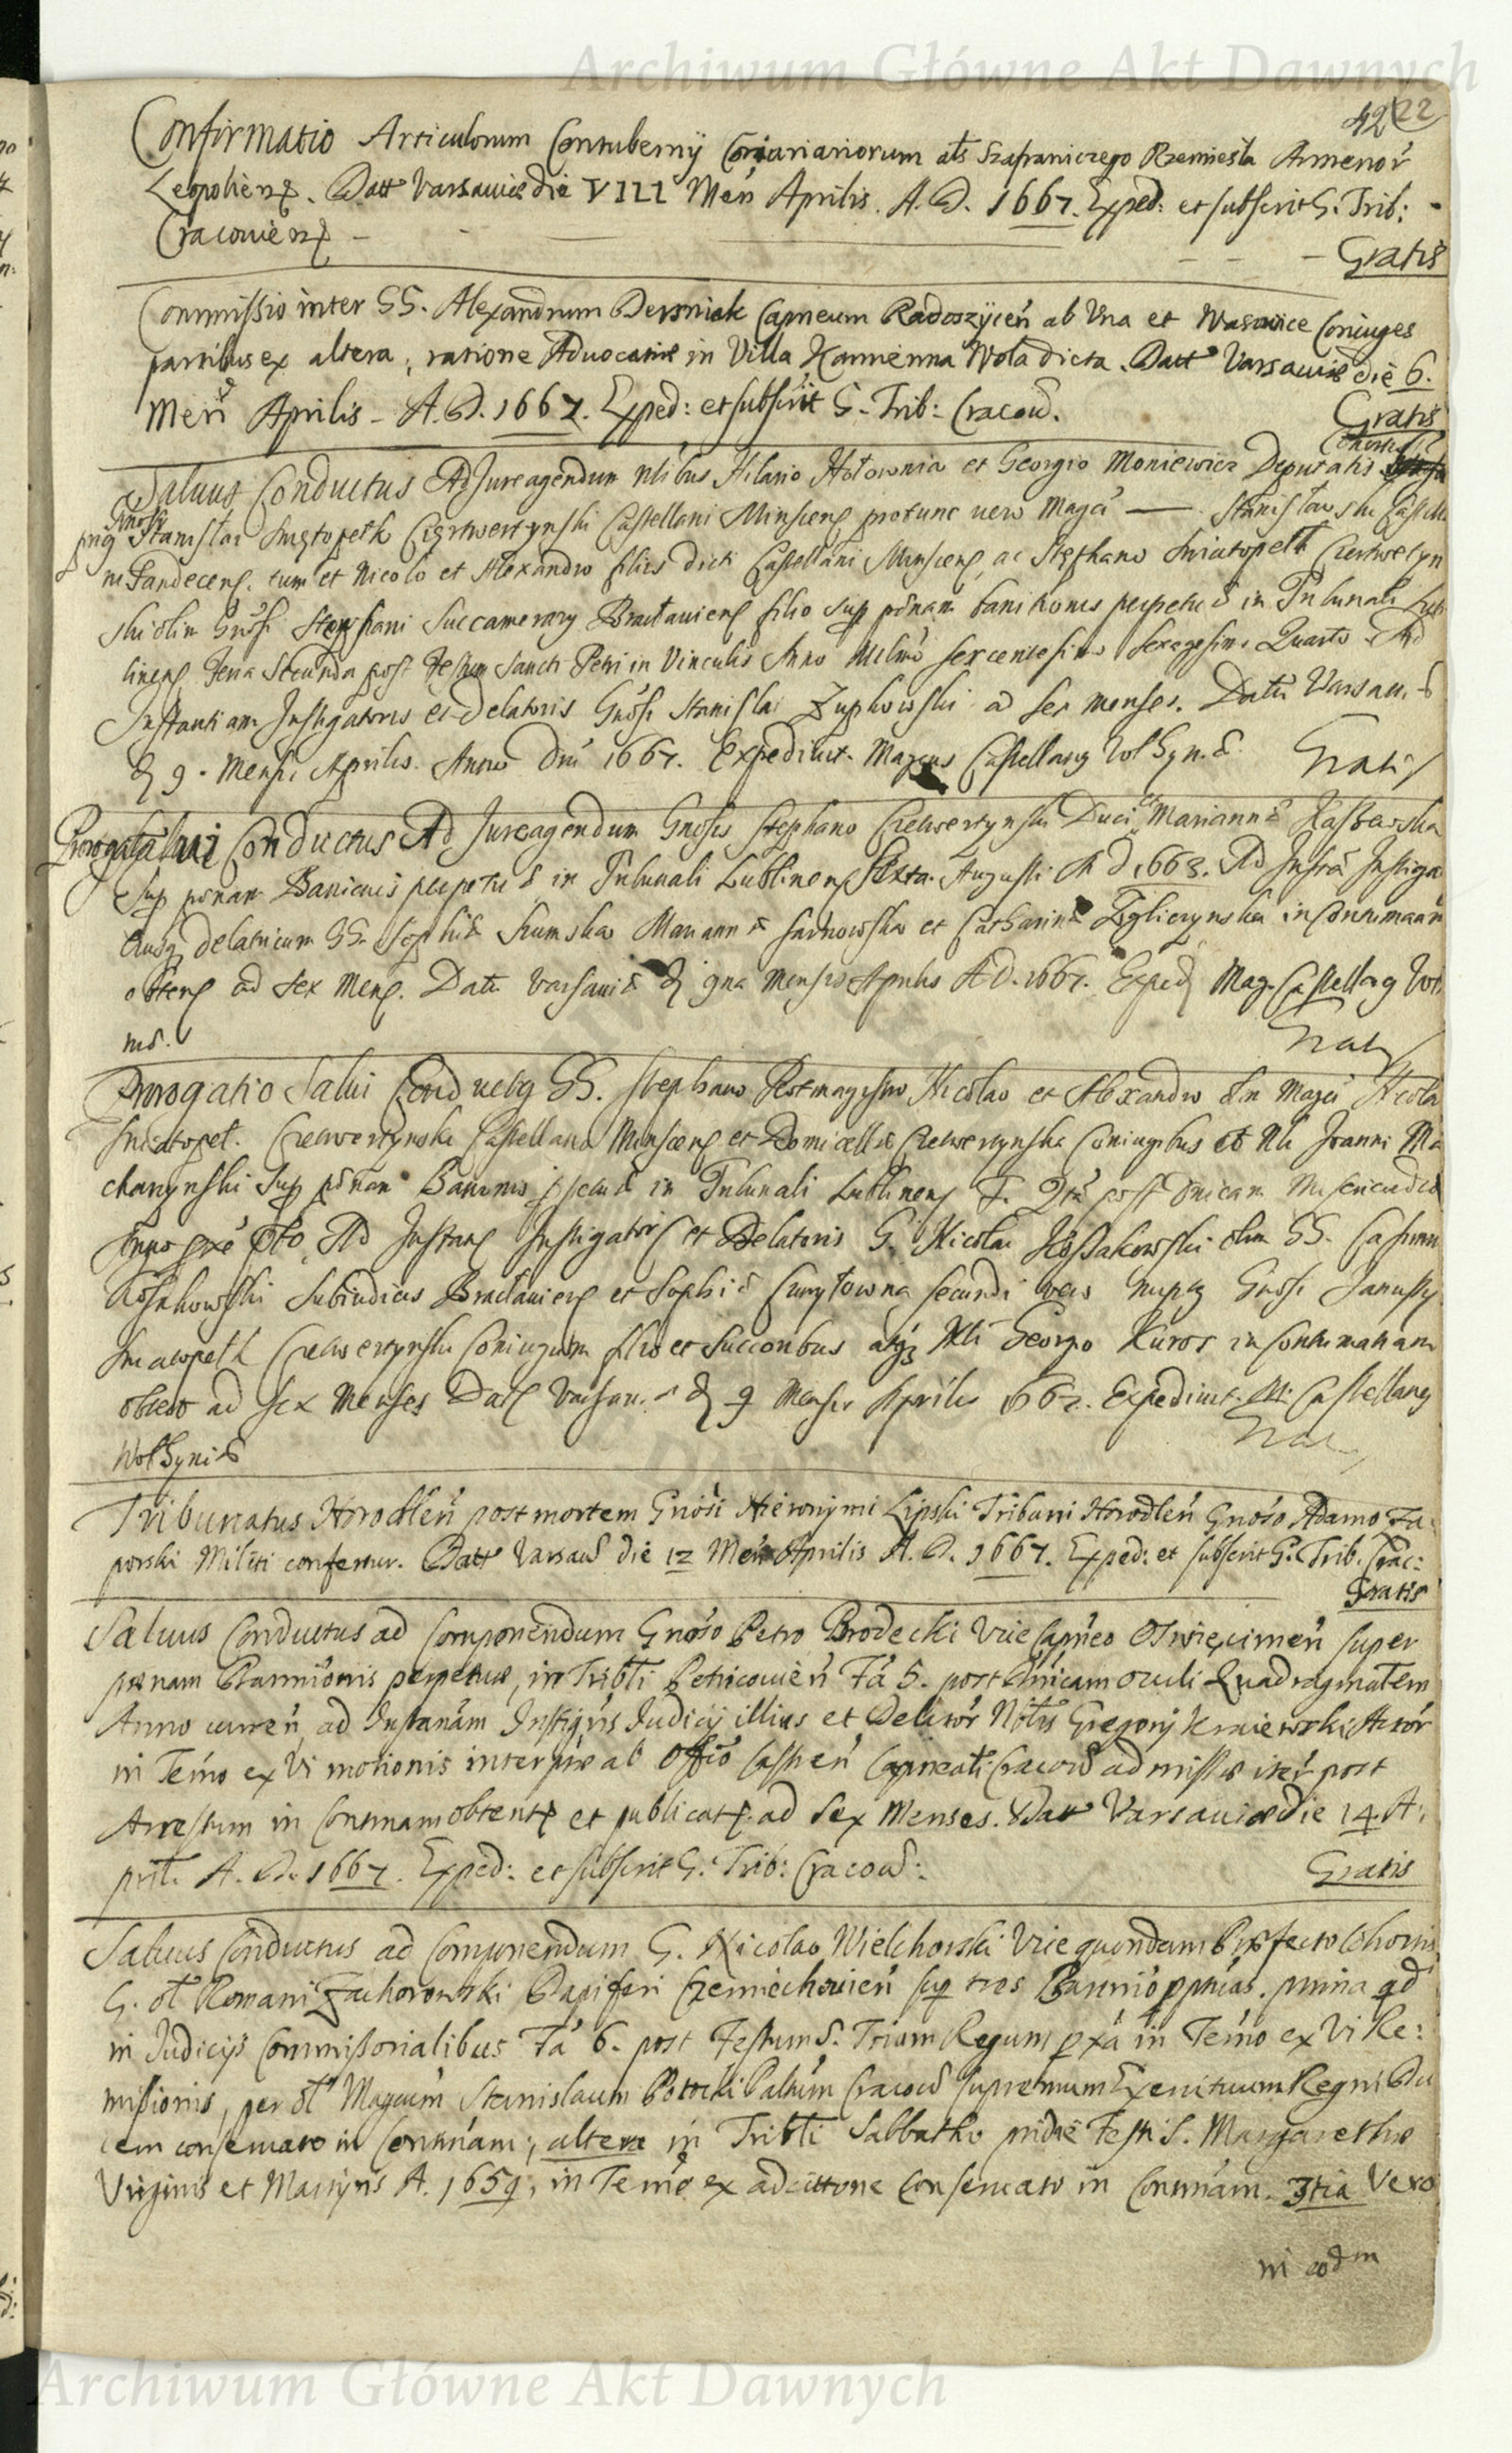 Archiwum Główne Akt Dawnych
42 22
Confirmatio Articulorum Contubernij Coriariariorum als Szafraniczego Rzemiesła Armenor
Leopolien. Datt Varsaviæ die VIII Men Aprilis. A. D. 1667. Exped: et subscrit G. Trib:
Cracovien
Gratis
Commissio inter GG. Alexandrum Dersniak Capneum Radoszÿcen ab Una et Wasowice Coniuges
partibus ex altera, ratione Advocatiæ in Villa Kamienna Wola dicta. Datt Varsaviæ die 6.
Men Aprilis - A. D. 1667. Exped: et subscrit G. Trib: Cracov.
Gratis
Salvus Conductus Ad Jure agendum Nlibus Hilario Hołownia et Georgio Moniewicz Deputatis
Gnosi Stanislai Swiętopełk Czetwertynski Castellani Minscen pro tunc vero Magci — Stanislawski Castella
ni Sandecens. tum et Nicolo et Alexandro filios dicti Castellani Minscens, ac Stephano Swiatopełk Czetwertyn
ski olim Gnosi Stephani Succamerary Bracławiens filio sup pænam banitionis perpetuæ in Tribunali Lub
linens Feria Secunda post Festum Sancti Petri in Vinculis Anno Milmo sexcentesimo sexagesimo Quarto Ad
Instantiam Instigatoris et Delatoris Gnosi Stanislai Zupkowski ad sex menses. Datu Varsaviæ
D 9. Mensis Aprilis. Anno Dni 1667. Expedivit Magcus Castellang Wolhyn.
Gratis
Prorogata Salvi Conductus Ad Jure agendum Gnosis Stephano Czetwertynski Duci et Mariannæ Kaszewska
Sup pænam Banicionis perpetuæ in Tribunali Lublinens Sexta Augusti A D 1663. Ad Instan Instiga
toris delatricum GG. Sophiæ Szumska Mariannæ Sarnowska et Catharinæ Zigliczynska in contumaciam
obtens ad sex Mens. Datu Varsaviæ D 9na Mensis Aprilis A D. 1667. Exped Mag. Castellang Wol
niæ.
Grat
Prorogatio Salvi Conductus GG. Stephano Rotmagistro Nicolao et Alexandro olim Magci Nicolai
Swiatopeł. Czetwertynski Castellano Minscens et Domicella Czetwertynska Coniugibus et Nli Joanni Ma
charzynski Sup pænam Banionis ppetuæ in Tribunali Lublinens F. Qta post Dnicam Misericordiæ
Anno pxe pto Ad Instans Instigatoris et Delatoris G. Nicolai Kossakowski olim GG. Casimiri
Kossakowski Subiudicis Bracłaviens et Sophiæ Curyłowna secundi voto nuptæ Gnosi Janussy
Swiatopełk Czetwertynski Coniugum filio et Succonibus atq Nli Georgio Kuros in contumaciam
obtento ad sex Menses Dats Varsaviæ D 9 Mensis Aprilis 1667. Expedivit M. Castellang
Wolhyniæ
Grat
Tribunatus Horodlen post mortem Gnosi Hieronymi Lipski Tribuni Horodlen Gnoso Adamo Za
porski Militi confertur. Datt Varsav die 12 Men Aprilis A. D. 1667. Exped: et subscrit G. Trib. Crac:
Gratis
Salvus Conductus ad Componendum Gnoso Petro Brodecki Vice Capneo Oswięcimen super
pænam Bannionis perpetuæ, in Tribli Petricovien Fa 5. post Dnicam Oculi Quadragmalem
Anno curren, ad Instanam Instigris Judicij illius et Delator Nobis Gregorij Kmiewski Actor
in Temo ex Vi motionis interpie ab Offio Castren Capneali Cracov admissæ iter post
Arrestum in Contmam obtent et publicat. ad Sex Menses. Datt Varsaviæ die 14. A:
pril. A. D. 1667. Exped: et subscrit G. Trib: Cracov:
Gratis
Salvus Conductus ad Componendum G. Nicolao Wielhorski Vice quondam Præfecto Cohortis
G. ol Romani Zachorowski Dapiferi Czerniechovien sup tres Bannio pptuas. prima qd
in Judicijs Commissorialibus Fa 6. post Festum S. Trium Regum pxa in Temo ex Vi Re:
missionis, per ol Magcum Stanislaum Potocki Paltum Cracov supremum Exercituum Regni Du
cem conservato in Contmam; altera in Tribli Sabbatho pridie Festi S. Margarethæ
Virginis et Martyris A. 1659, in Temo ex adcittone conservato in Contmam. 3tia Vero
in eodm
Archiwum Główne Akt Dawnych